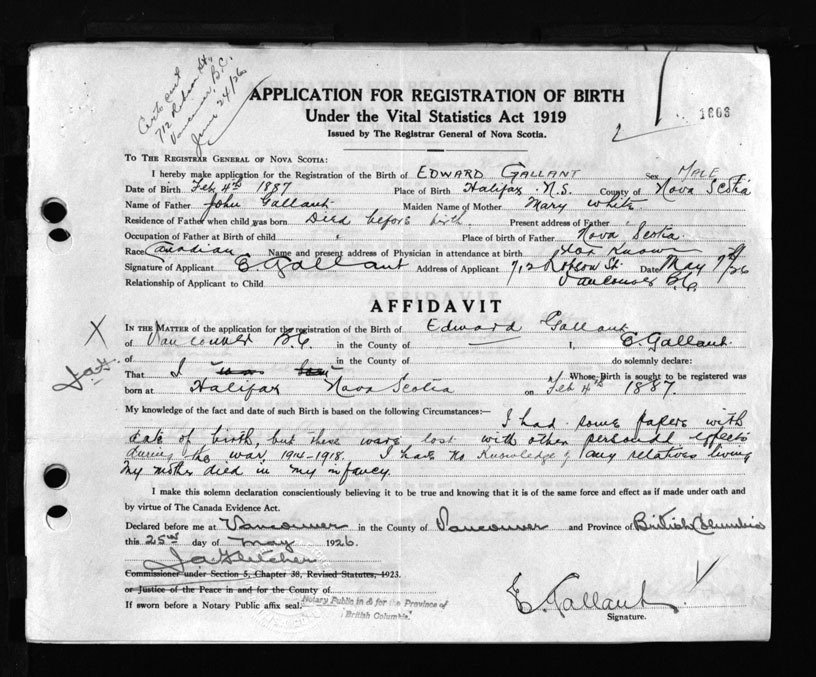 Cert sent
712 Robson St,
Vancouver, B.C.
June 24/26
APPLICATION FOR REGISTRATION OF BIRTH
Under the Vital Statistics Act 1919
Issued by The Registrar General of Nova Scotia.
1603
TO THE REGISTRAR GENERAL OF NOVA SCOTIA:
I hereby make application for the Registration of the Birth of EDWARD GALLANT Sex MALE
Date of Birth Feb 4th 1887 Place of Birth Halifax N.S. County of Nova Scotia
Name of Father John Gallant Maiden Name of Mother Mary White
Residence of Father when child was born Died before birth. Present address of Father
Occupation of Father at Birth of child Place of birth of Father Nova Scotia
Race Canadian Name and present address of Physician in attendance at birth Not Known
Signature of Applicant E. Gallant Address of Applicant 712 Robson St. Date May 7th/26
Relationship of Applicant to Child Vancouver B.C.
AFFIDAVIT
X IN THE MATTER of the application for the registration of the Birth of Edward Gallant
of Vancouver B.C. in the County of I, E. Gallant
of in the County of do solemnly declare:
J.A.F. That I was born Whose Birth is sought to be registered was
born at Halifax Nova Scotia on Feb 4th 1887.
My knowledge of the fact and date of such Birth is based on the following Circumstances:—
I had some papers with
date of birth, but these were lost with other personal effects
during the war, 1914-1918. I have no knowledge of any relatives living
My mother died in my infancy.
I make this solemn declaration conscientiously believing it to be true and knowing that it is of the same force and effect as if made under oath and
by virtue of The Canada Evidence Act.
Declared before me at Vancouver in the County of Vancouver and Province of British Columbia
this 25th day of May 1926
J.A. Fletcher
Commissioner under Section 5, Chapter 38, Revised Statutes, 1923.
or Justice of the Peace in and for the County of
If sworn before a Notary Public affix seal. Notary Public in & for the Province of
British Columbia.
E. Gallant
Signature.